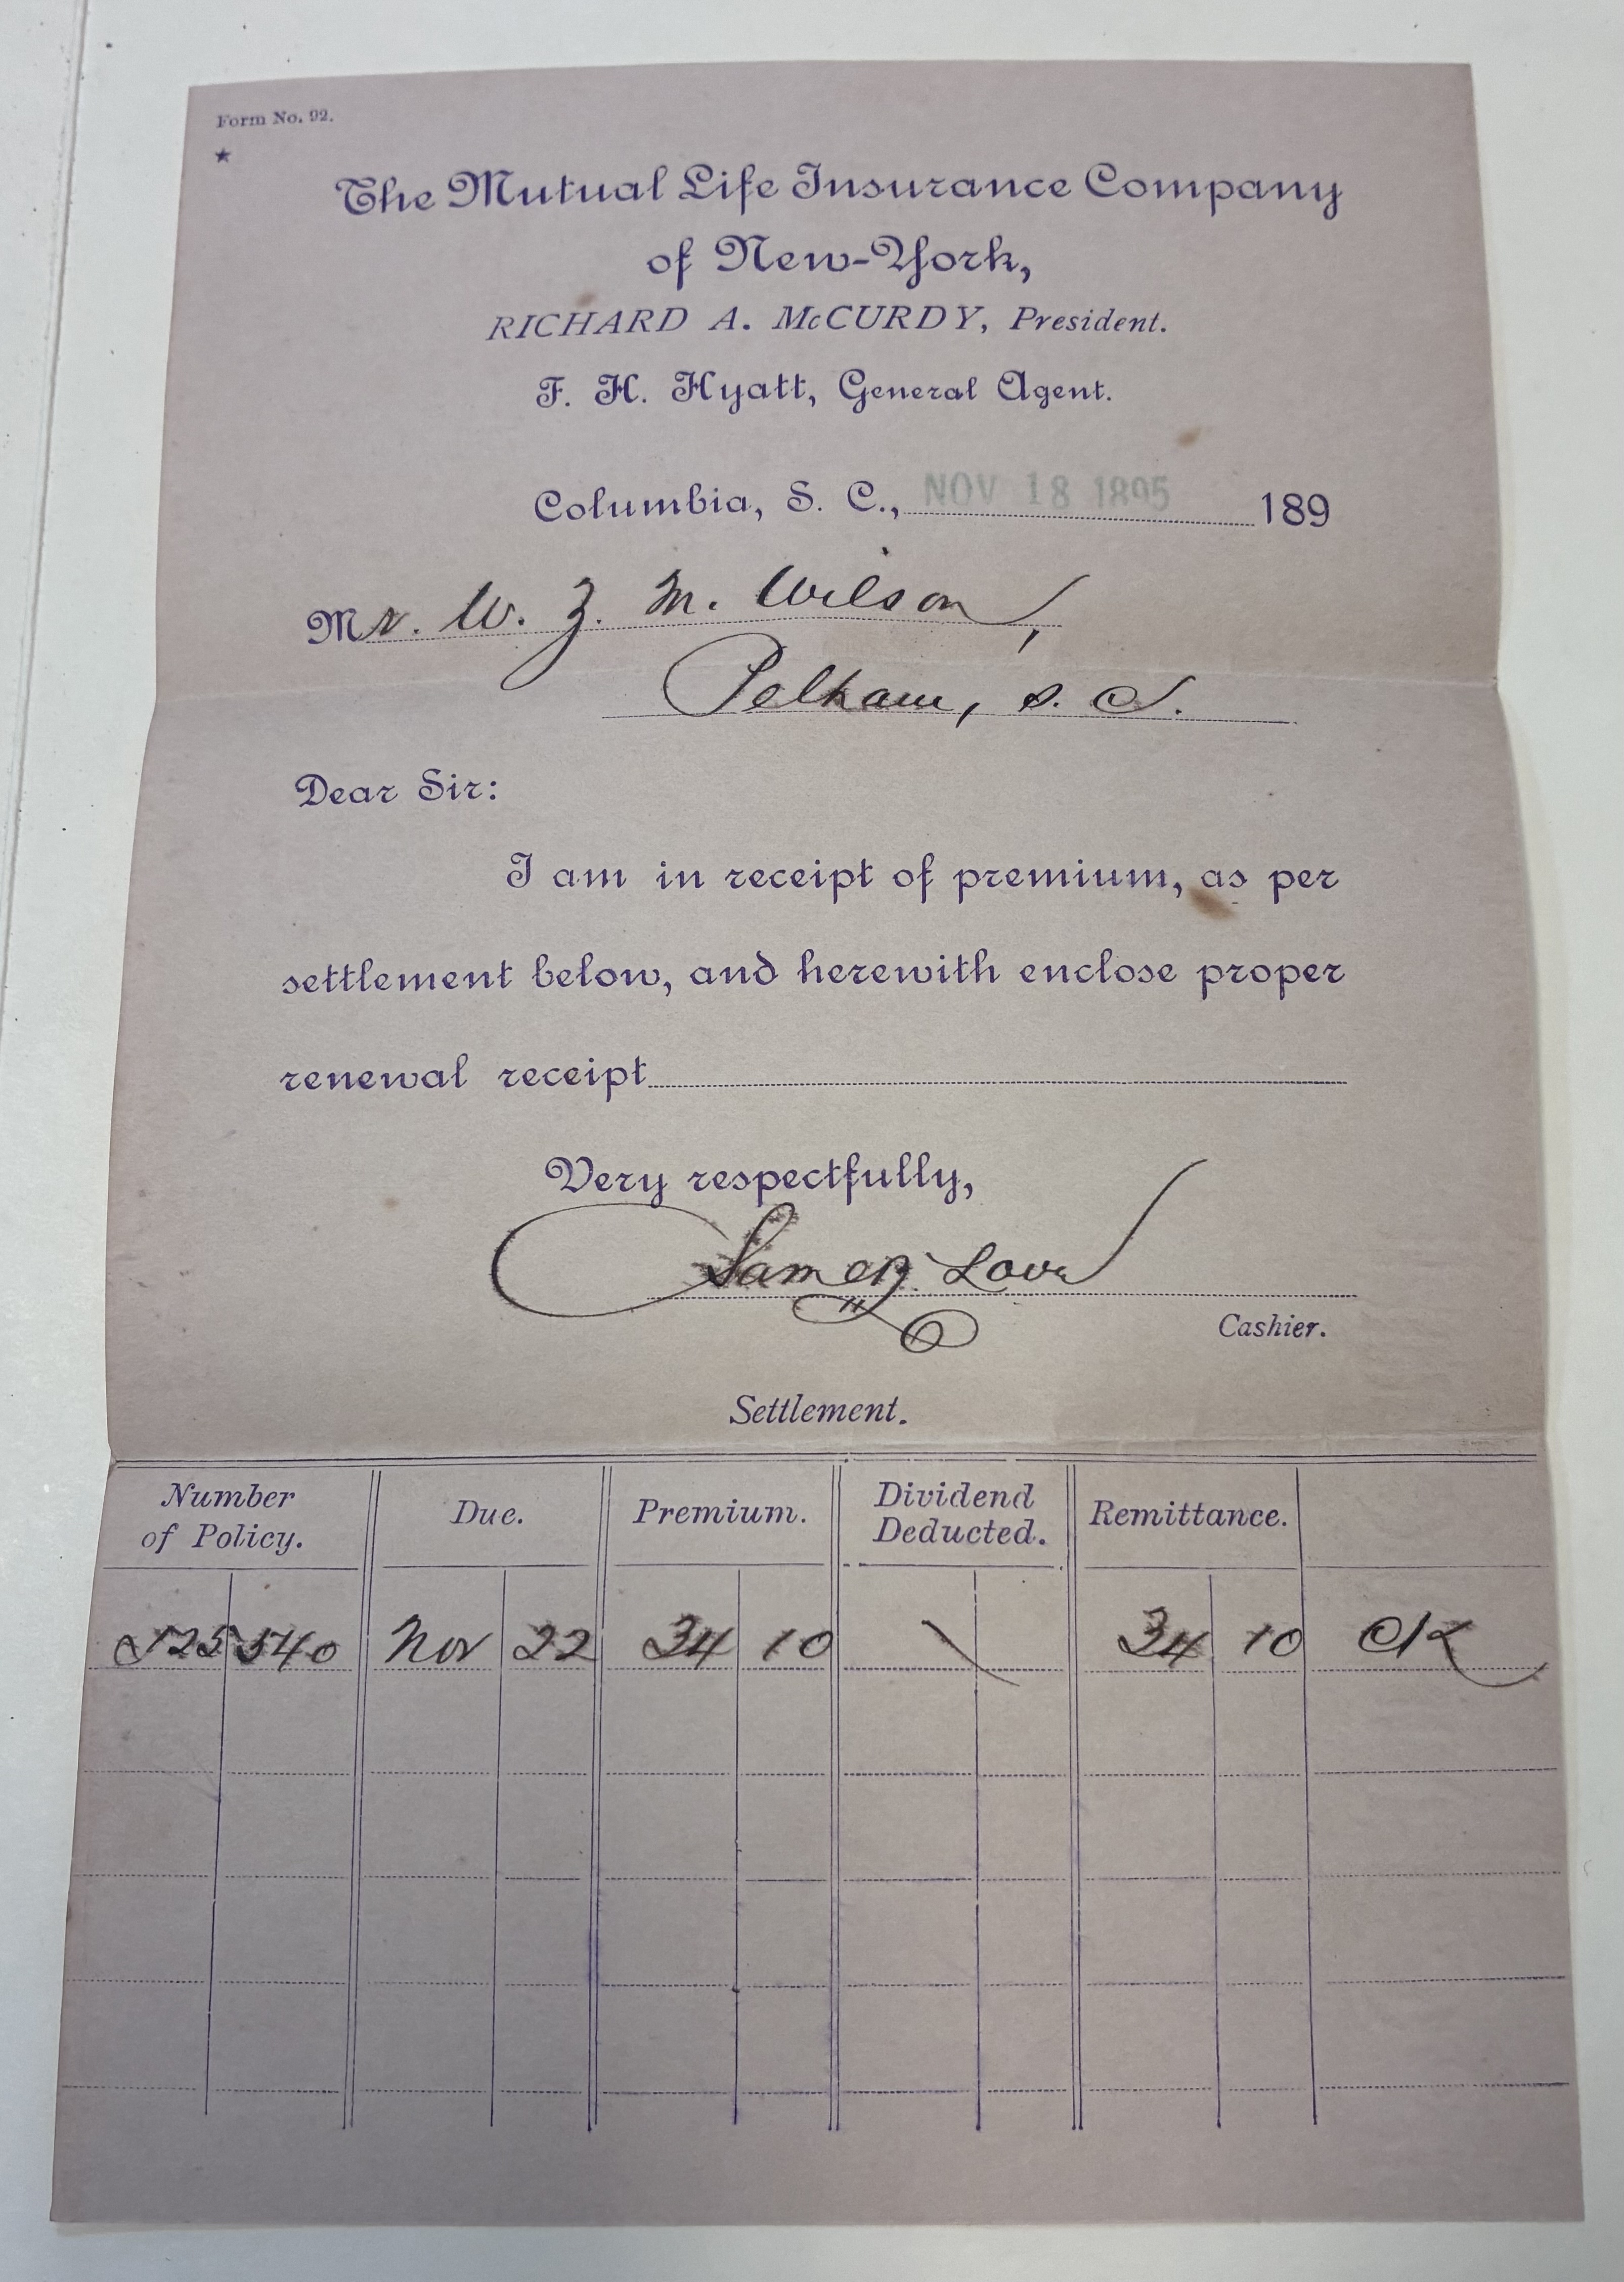 Form No. 92.
★
The Mutual Life Insurance Company
of New-York,
RICHARD A. McCURDY, President.
F. H. Hyatt, General Agent.
Columbia, S. C., NOV 18 1895 189
Mr. W. Z. M. Wilson,
Pelham, S. C.
Dear Sir:
I am in receipt of premium, as per
settlement below, and herewith enclose proper
renewal receipt
Very respectfully,
Love
Cashier.
Settlement.
Number of Policy. Due. Premium. Dividend Deducted. Remittance.
525 540 Nov 22 34 10 34 10 CK